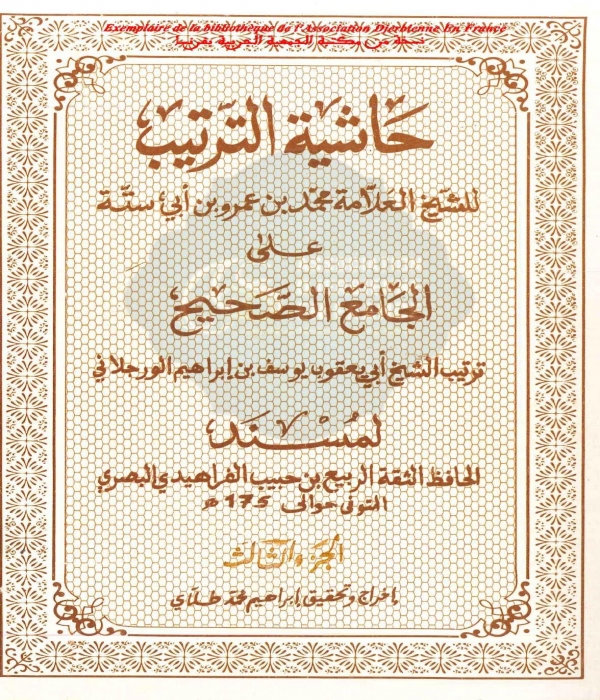 Exemplaire de la bibliothèque de l'Association Djerbienne En France
نسخة من مكتبة الجمعية الجربية بفرنسا
حاشية الترتيب
للشيخ العلامة محمد بن عمرو بن أبي ستة
على
الجامع الصحيح
ترتيب الشيخ أبي يعقوب يوسف بن إبراهيم الورجلاني
لمسند
الحافظ الثقة الربيع بن حبيب الفراهيدي البصري
المتوفى حوالى 175 هـ
الجزء الثالث
إخراج وتحقيق إبراهيم محمد طلاي